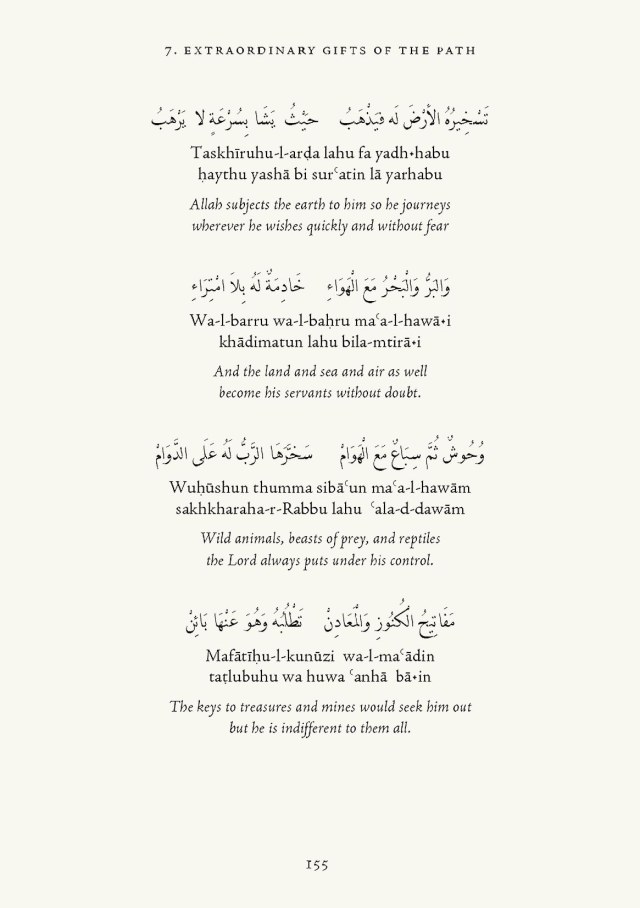 7. EXTRAORDINARY GIFTS OF THE PATH
تَسْخِيرُهُ الأَرْضَ لَه فَيَذْهَبُ    حَيْثُ يَشَا بِسُرْعَةٍ لا يَرْهَبُ
Taskhīruhu-l-arḍa lahu fa yadh•habu
ḥaythu yashā bi surʿatin lā yarhabu
Allah subjects the earth to him so he journeys
wherever he wishes quickly and without fear
وَالبَرُّ وَالْبَحْرُ مَعَ الْهَوَاءِ    خَادِمَةٌ لَهُ بِلاَ امْتِرَاءِ
Wa-l-barru wa-l-baḥru maʿa-l-hawā•i
khādimatun lahu bila-mtirā•i
And the land and sea and air as well
become his servants without doubt.
وُحُوشٌ ثُمَّ سِبَاعٌ مَعَ الْهَوَامْ    سَخَّرَهَا الرَّبُّ لَهُ عَلَى الدَّوَامْ
Wuḥūshun thumma sibāʿun maʿa-l-hawām
sakhkharaha-r-Rabbu lahu ʿala-d-dawām
Wild animals, beasts of prey, and reptiles
the Lord always puts under his control.
مَفَاتِيحُ الْكُنُوزِ وَالْمَعَادِنْ    تَطْلُبُهُ وَهُوَ عَنْهَا بَائِنْ
Mafātīḥu-l-kunūzi wa-l-maʿādin
taṭlubuhu wa huwa ʿanhā bā•in
The keys to treasures and mines would seek him out
but he is indifferent to them all.
155